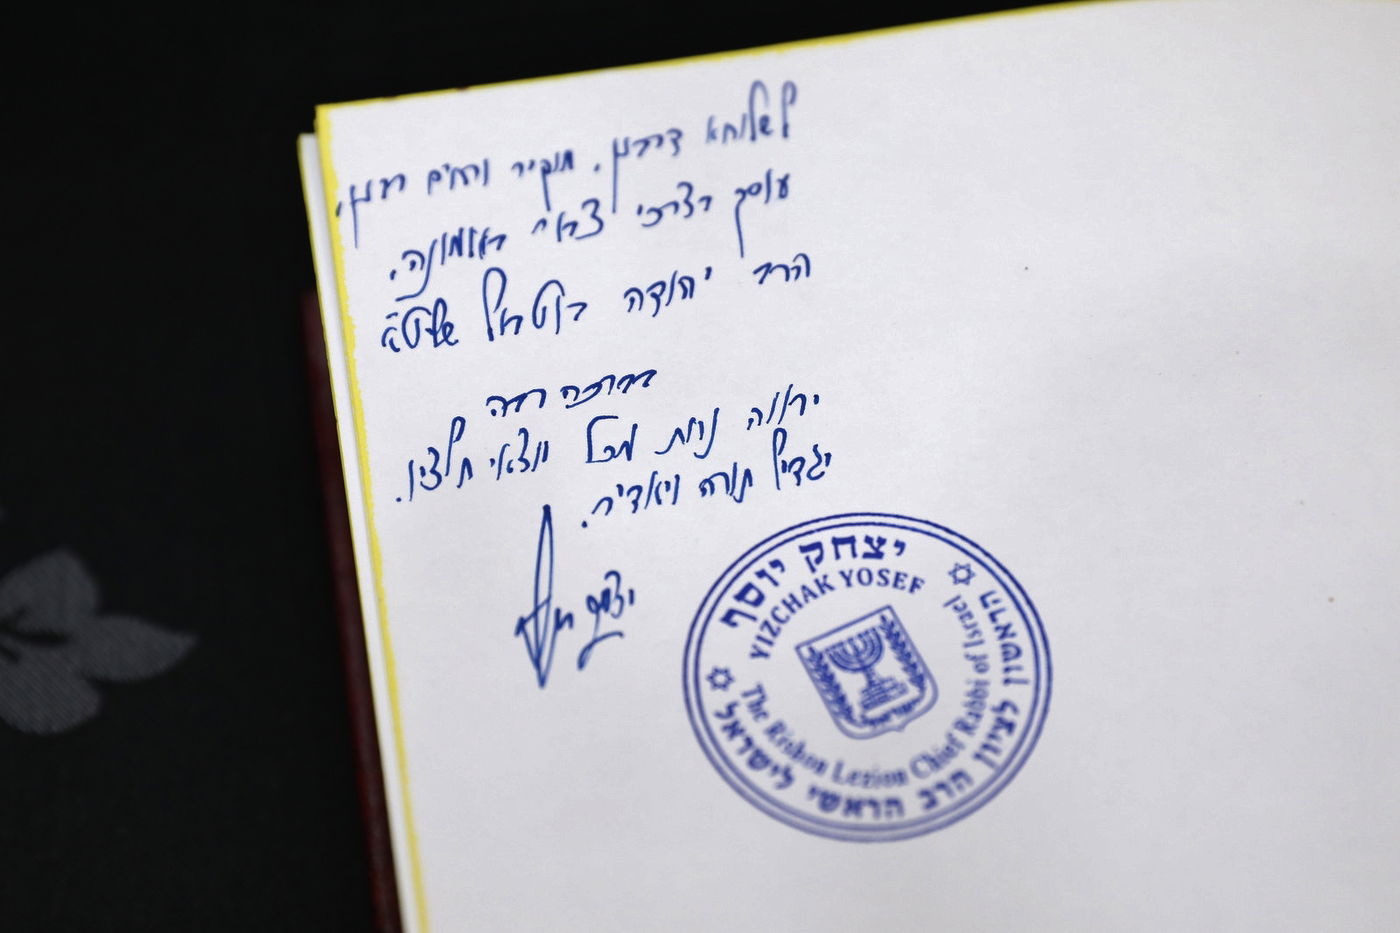 לשלוחא דרבנן, מוקיר ורחים רבנן,
עוסק בצרכי ציבור באמונה,
הרב יהודה שליט"א
בברכה רבה
ירווה נחת מכל יוצאי חלציו.
יגדיל תורה ויאדיר.
יצחק יוסף
יצחק יוסף
YIZCHAK YOSEF
The Rishon Lezion Chief Rabbi of Israel
הראשון לציון הרב הראשי לישראל